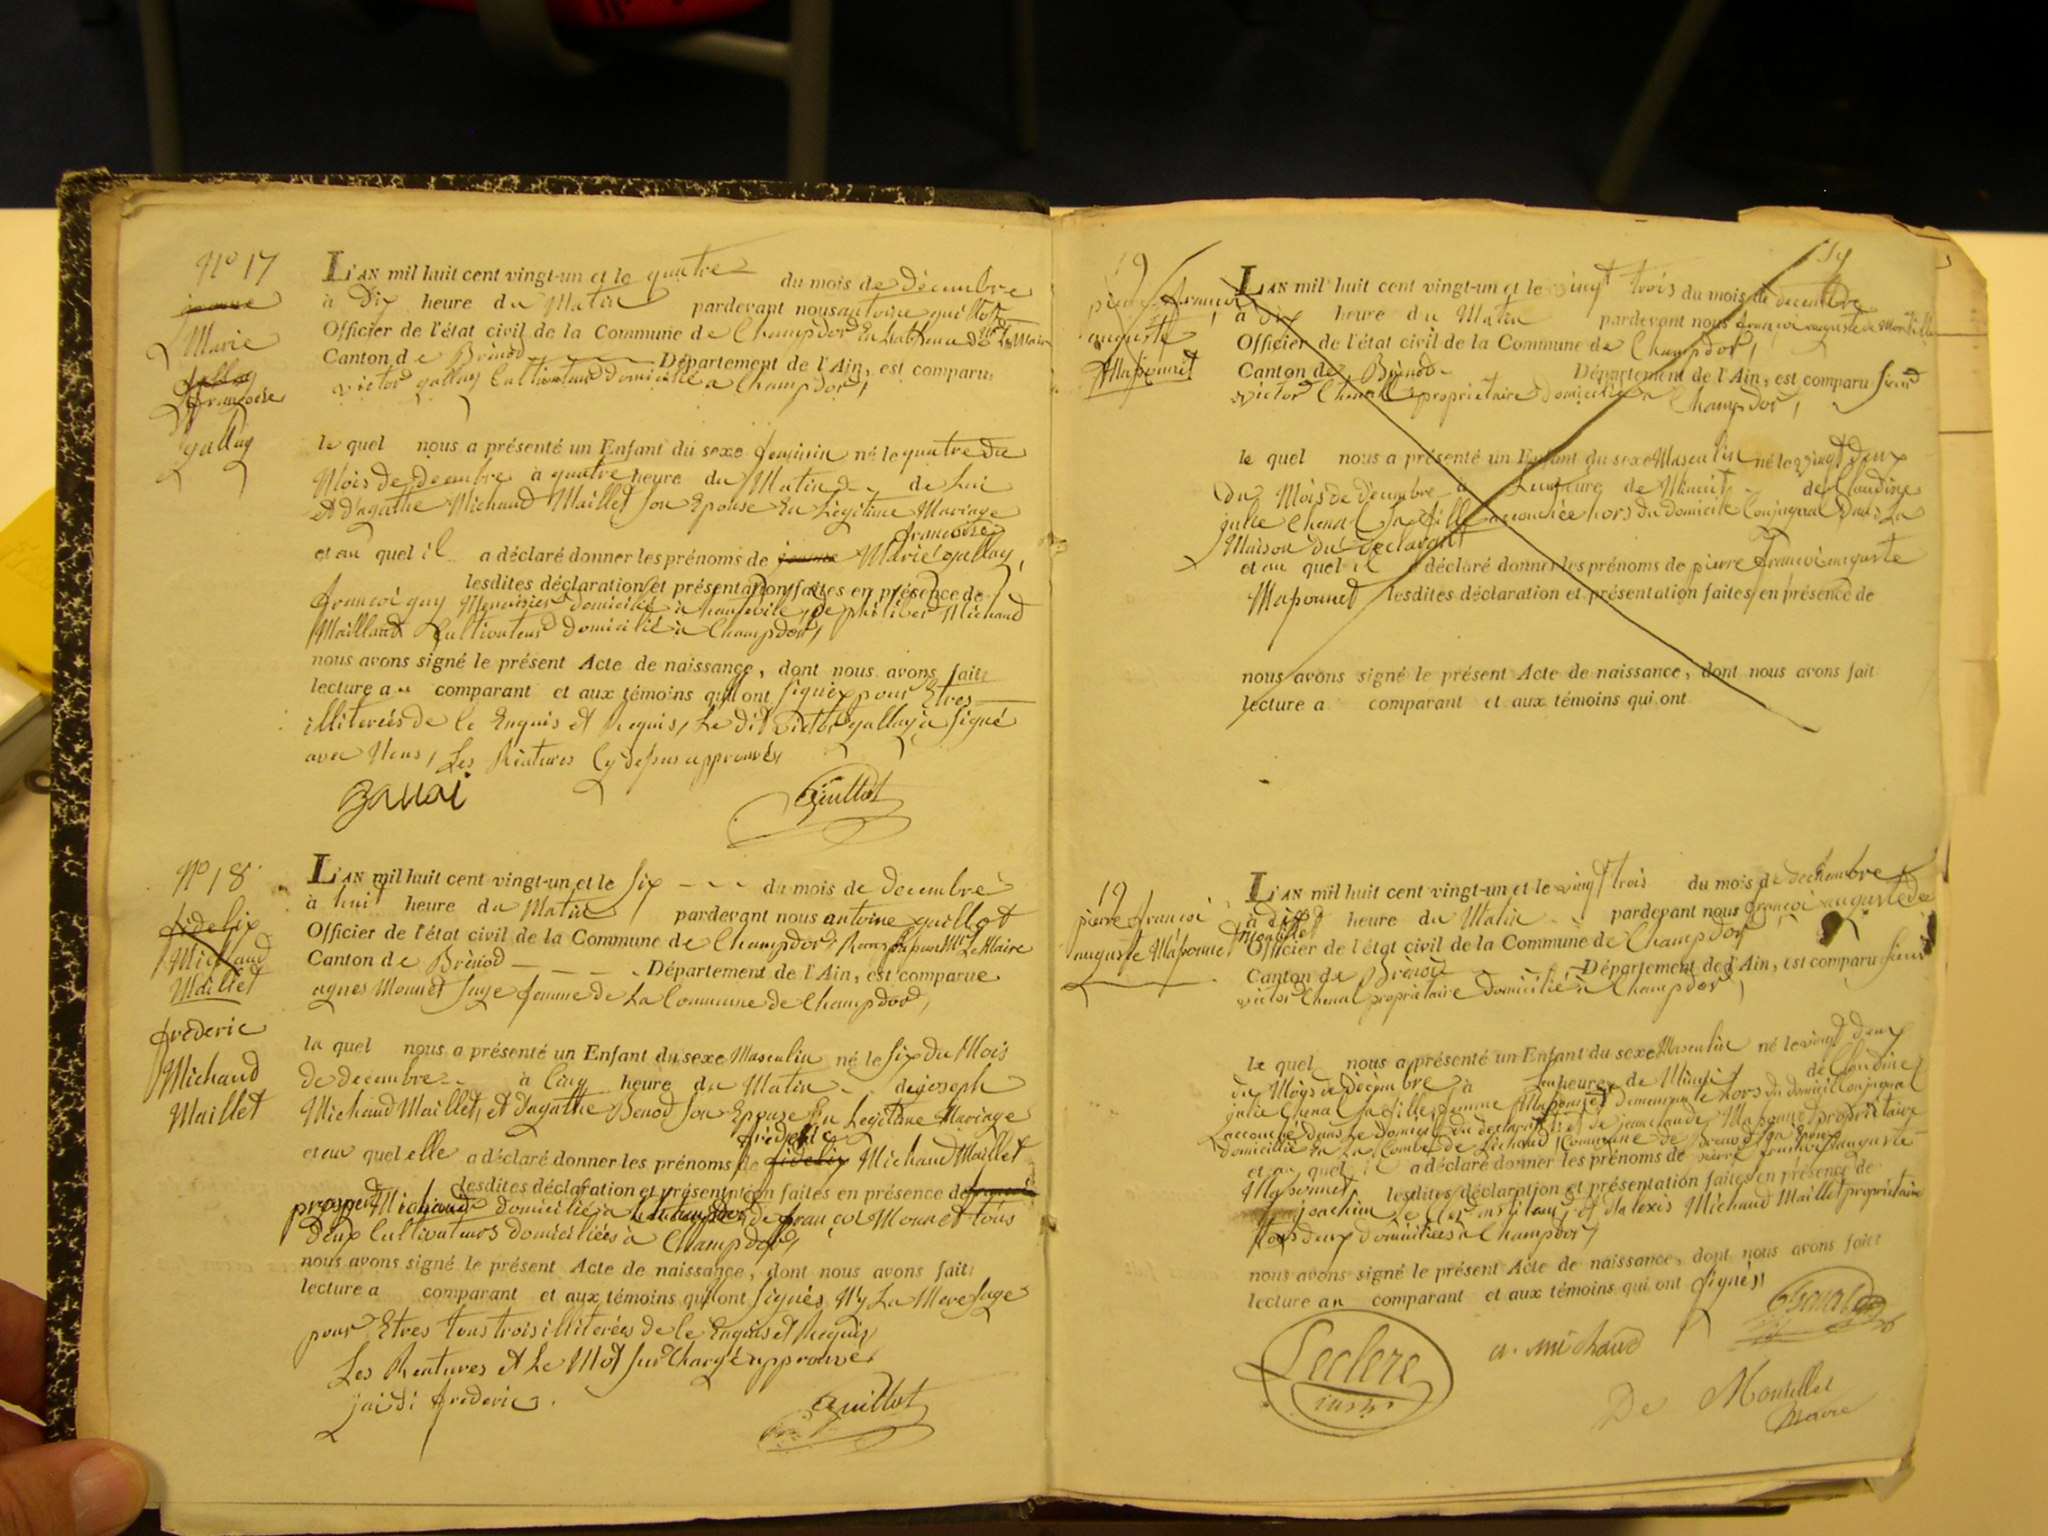 N° 17
Marie
françoise
gallay
L'AN mil huit cent vingt-un et le quatre du mois de décembre
à Dix heure du Matin pardevant nous antoine guillot
Officier de l'état civil de la Commune de Champdor
Canton de Brénod Département de l'Ain, est comparu
victor gallay Cultivateur domicilié a Champdor
le quel nous a présenté un Enfant du sexe feminin né le quatre du
Mois de decembre à quatre heure du Matin de Lui
et d'agathe Michaud Maillet son Epouse En Légitime Mariage
françoise
et au quel il a déclaré donner les prénoms de Marie gallay
lesdites déclaration et présentation faites en présence de
françoi guy Menuisier domicilié à et de philiber Michaud
Mailland Cultivateur domicilié à Champdor
nous avons signé le présent Acte de naissance, dont nous avons fait
lecture au comparant et aux témoins qui ont signés pour Etres
illiterés de Ce Enquis et Requis, Le dit victor gallay a signé
avec Nous, Les Ratures Cy dessus approuvés
gallai
Guillot
N° 18
fidelix
Michaud
Maillet
frederic
Michaud
Maillet
L'AN mil huit cent vingt-un et le six du mois de decembre
à huit heure du Matin pardevant nous antoine guillot
Officier de l'état civil de la Commune de Champdor par Mr Le Maire
Canton de Brénod Département de l'Ain, est comparue
agnes Monnet sage femme de La Commune de Champdor
la quel nous a présenté un Enfant du sexe Masculin né le six du Mois
de decembre à Cinq heure du Matin de joseph
Michaud Maillet, et d'agathe Benod son Epouse En Legitime Mariage
frederic
et au quel elle a déclaré donner les prénoms de fidelix Michaud Maillet
lesdites déclaration et présentation faites en présence de
prosper Michaud domicilié a et de françoi Monnet tous
deux Cultivateurs domiciliées à Champdor
nous avons signé le présent Acte de naissance, dont nous avons fait
lecture a comparant et aux témoins qui ont signés Ny La Mere sage
pour Etres tous trois illiterées de Ce Enquis et Requis
Les Ratures et Le Mot sur Chargé approuvé
jai di frederic
Guillot
19
pierre françoi
auguste
Maponnet
L'AN mil huit cent vingt-un et le vingt trois du mois de decembre
à dix heure du Matin pardevant nous françoi auguste de Montillet
Officier de l'état civil de la Commune de Champdor
Canton de Brénod Département de l'Ain, est comparu sieur
victor Chenal propriétaire domicilié a Champdor
le quel nous a présenté un Enfant du sexe Masculin né le vingt deux
du Mois de decembre à heure de Minuit de Claudine
julie Chenal sa fille accouchée hors du domicile Conjugual dans La
Maison du declarant
et au quel il a déclaré donner les prénoms de pierre françoi auguste
Maponnet lesdites déclaration et présentation faites en présence de
nous avons signé le présent Acte de naissance, dont nous avons fait
lecture a comparant et aux témoins qui ont
19
pierre françoi
auguste Maponnet
L'AN mil huit cent vingt-un et le vingt trois du mois de dechembre
à dix heure du Matin pardevant nous françoi auguste de
Montillet
Officier de l'état civil de la Commune de Champdor
Canton de Brénod Département de l'Ain, est comparu sieur
victor Chenal propriétaire domicilié à Champdor
le quel nous a présenté un Enfant du sexe Masculin né le vingt deux
du Moys de decembre à heure de Minuit de Claudine
julie Chenal sa fille femme Maponnet hors du domicil Conjugual
accouché dans Le domicil du declarant et de jean claude Maponnet propriétaire
domicilié En La Combe de Commune de Brenod
et au quel il a déclaré donner les prénoms de pierre françoi auguste
Maponnet lesdites déclaration et présentation faites en présence de
joachim le Clerc et d'alexis Michaud Maillet propriétaire
tous deux domiciliées à Champdor
nous avons signé le présent Acte de naissance, dont nous avons fait
lecture au comparant et aux témoins qui ont signés
Chenal
Leclerc
a. michaud
De Montillet
Maire